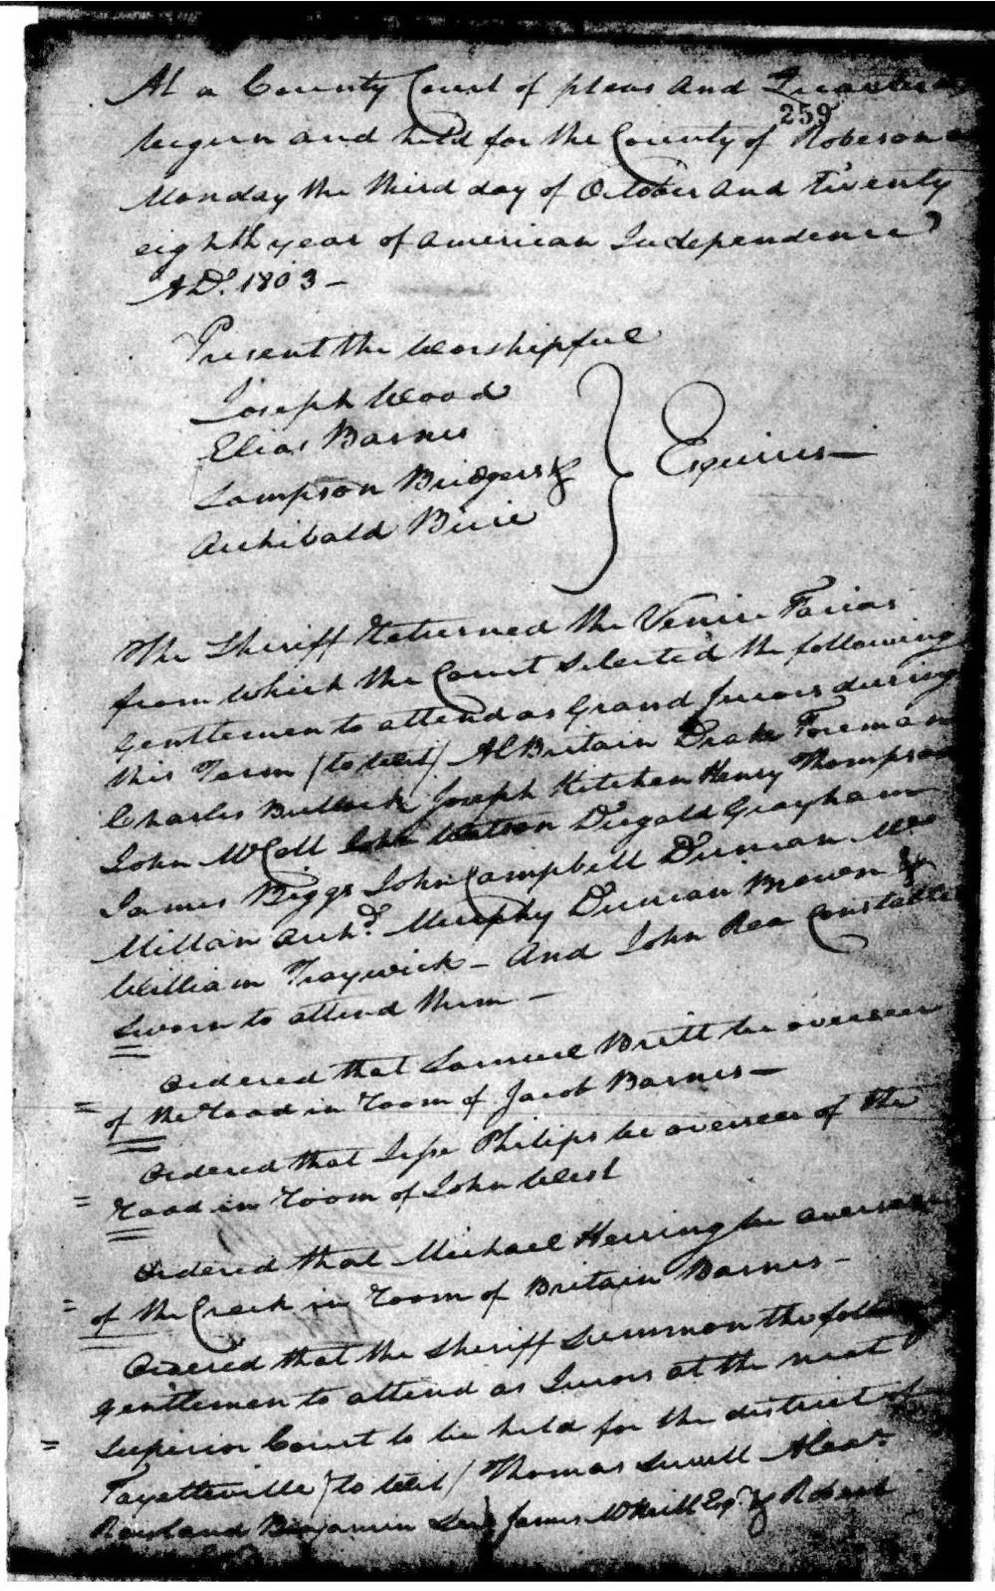 At a County Court of pleas and Quarter
259
begun and held for the County of Robeson
Monday the third day of October and twenty
eighth year of American Independence
AD. 1803 –
Present the Worshipful
Joseph Wood
Elias Barnes
Sampson Bridgers &
Archibald Buie
Esquires –
The Sheriff returned the Venire Facias
from which the Court selected the following
gentlemen to attend as Grand Jurors during
this Term (to wit) Al Britain Drake Foreman
Charles Bullock Joseph Kitchen Henry Thompson
John McColl John Watson Dugald Grayham
James Biggs John Campbell Duncan Mc
Millan Archd. Murphy Duncan Brown &
William Traywick – And John Rea Constable
sworn to attend them –
Ordered that Samuel Britt be overseer
= of the road in room of Jacob Barnes –
Ordered that Jesse Philips be overseer of the
= road in room of John West
Ordered that Michael Herring be overseer
= of the Creek in room of Britain Barnes –
Ordered that the Sheriff summon the
gentlemen to attend as Jurors at the next
= Superior Court to be held for the district of
Fayetteville (to wit) Thomas Sewell Alexr.
Rowland Benjamin Lee James McNeill Esqr. & Robert